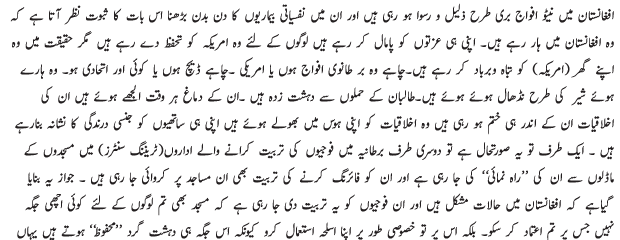 افغانستان میں نیٹو افواج بری طرح ذلیل و رسوا ہو رہی ہیں اور ان میں نفسیاتی بیماریوں کا دن بدن بڑھنا اس بات کا ثبوت نظر آتا ہے کہ
وہ افغانستان میں ہار رہے ہیں۔ اپنی ہی عزتوں کو پامال کر رہے ہیں لوگوں کے لئے وہ امریکہ کو تحفظ دے رہے ہیں مگر حقیقت میں وہ
اپنے گھر (امریکہ) کو تباہ وبرباد کر رہے ہیں۔چاہے وہ بر طانوی افواج ہوں یا امریکی ۔چاہے ڈیچ ہوں یا کوئی اور اتحادی ہو۔ وہ ہارے
ہوئے شیر کی طرح نڈھال ہوئے ہوئے ہیں۔طالبان کے حملوں سے دہشت زدہ ہیں ۔ان کے دماغ ہر وقت الجھے ہوئے ہیں ان کی
اخلاقیات ان کے اندر ہی ختم ہو رہی ہیں وہ اخلاقیات کو اپنی ہوس میں بھولے ہوئے ہیں اپنی ہی ساتھیوں کو جنسی درندگی کا نشانہ بنارہے
ہیں ۔ ایک طرف تو یہ صورتحال ہے تو دوسری طرف برطانیہ میں فوجیوں کی تربیت کرانے والے اداروں(ٹریننگ سنٹرز) میں مسجدوں کے
ماڈلوں سے ان کی ’’راہ نمائی‘‘ کی جا رہی ہے اور ان کو فائرنگ کرنے کی تربیت بھی ان مساجد پر کروائی جا رہی ہیں ۔ جواز یہ بنایا
گیاہے کہ افغانستان میں حالات مشکل ہیں اور ان فوجیوں کو یہ تربیت دی جا رہی ہے کہ مسجد بھی تم لوگوں کے لئے کوئی اچھی جگہ
نہیں جس پر تم اعتماد کر سکو۔ بلکہ اس پر تو خصوصی طور پر اپنا اسلحہ استعمال کرو کیونکہ اس جگہ ہی دہشت گرد ’’محفوظ‘‘ ہوتے ہیں یہاں